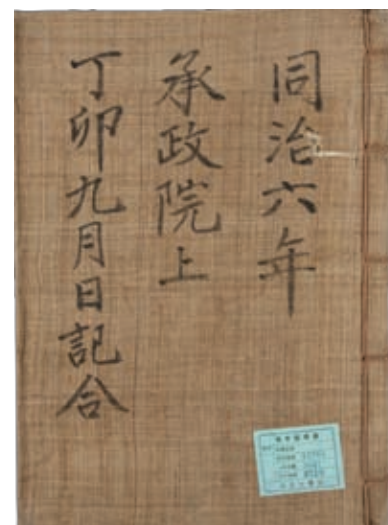 同治六年
承政院上
丁卯九月日記合